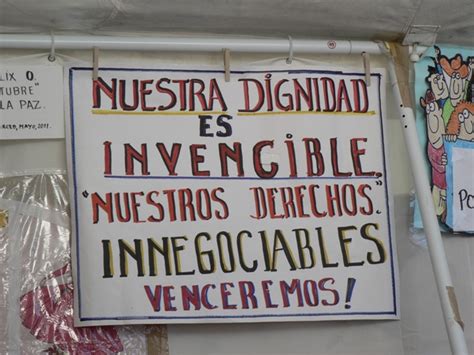 LIX O.
TUBRE"
LA PAZ.
MAYO, 2011.
NUESTRA DIGNIDAD
ES
INVENCIBLE.
"NUESTROS DERECHOS".
INNEGOCIABLES
VENCEREMOS!